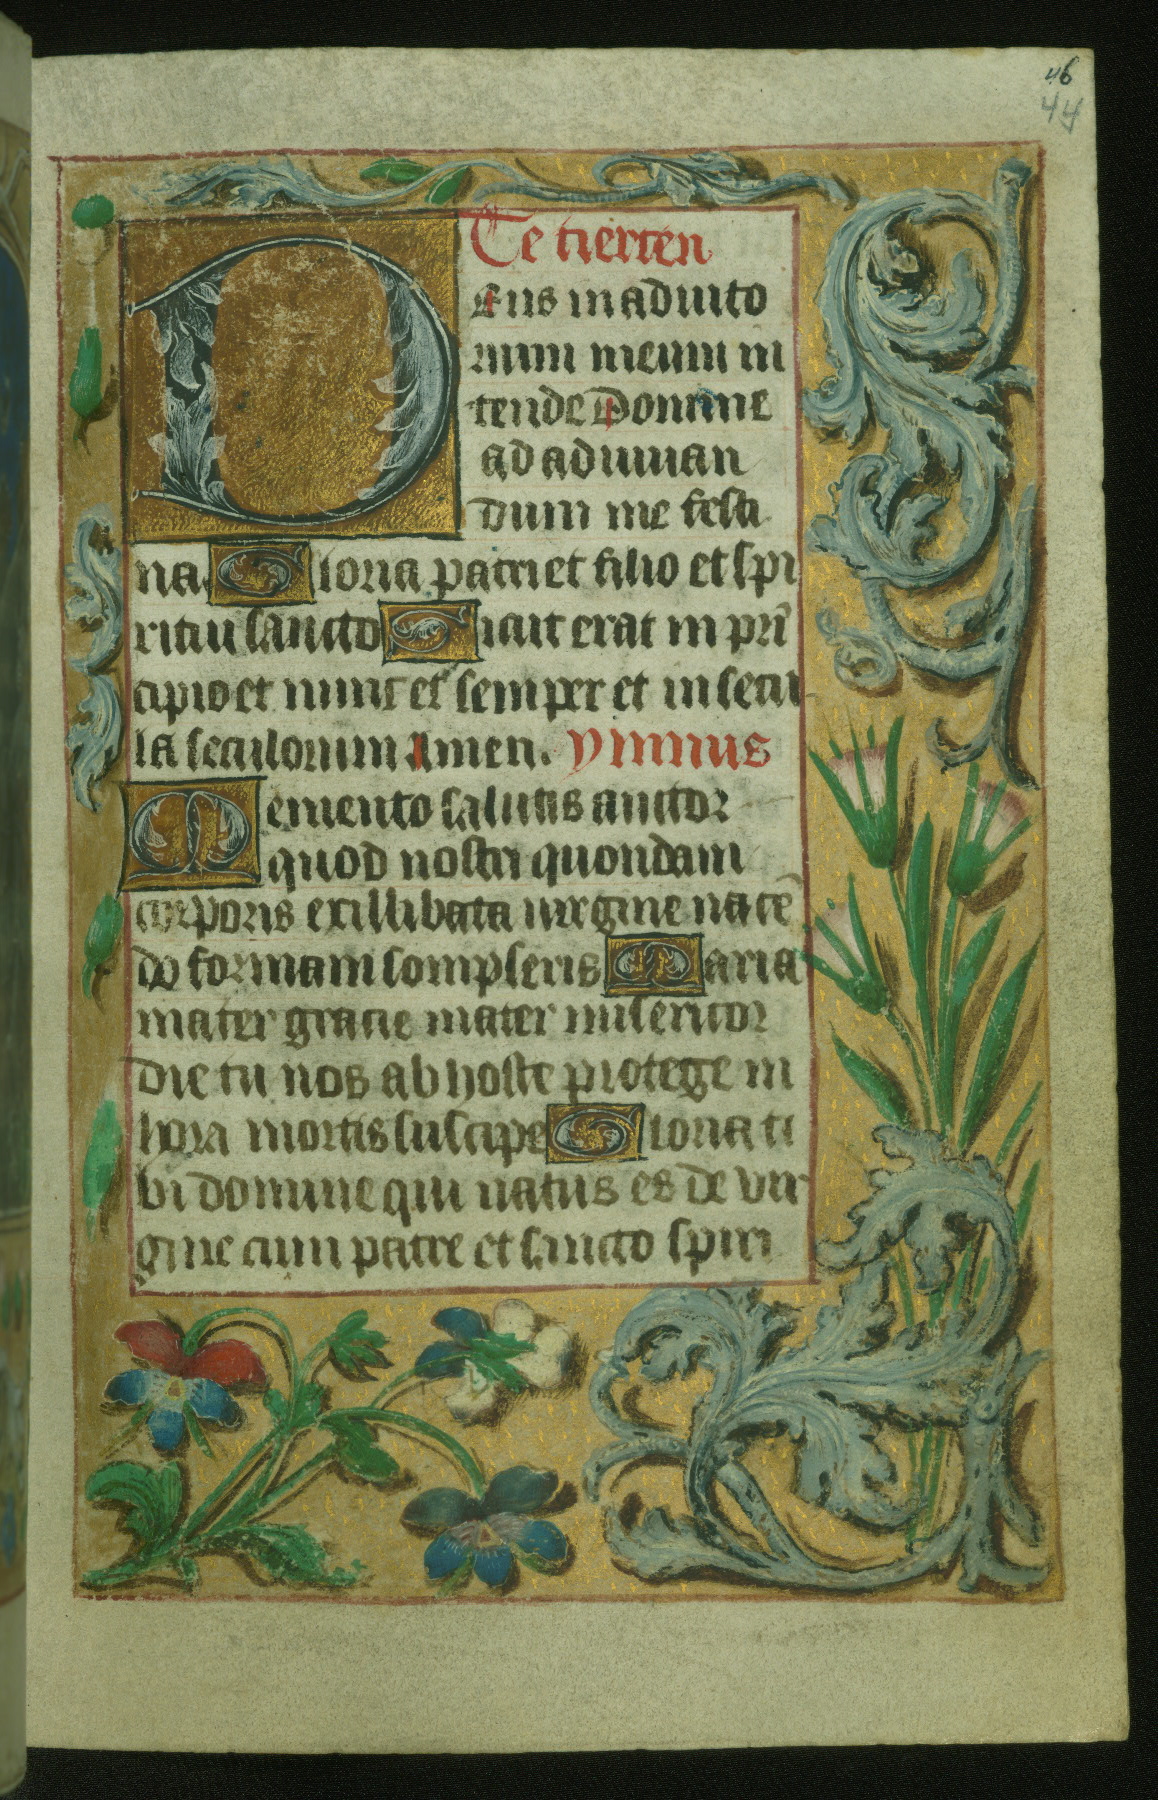 46
44
Te tierten
Deus in adiuto
rium meum in
tende Domine
ad adiuuan
dum me festi
na Gloria patri et filio et spi
ritui sancto Sicut erat in pri̅
cipio et nunc et semper et in secu
la seculorum Amen. ymnus
Memento salutis auctor
quod nostri quondam
corporis ex illibata uirgine nace̅
do formam sompseris Maria
mater gracie mater misericor
die tu nos ab hoste protege in
hora mortis suscipe Gloria ti
bi domine qui natus es de vir
gine cum patre et sancto spiri